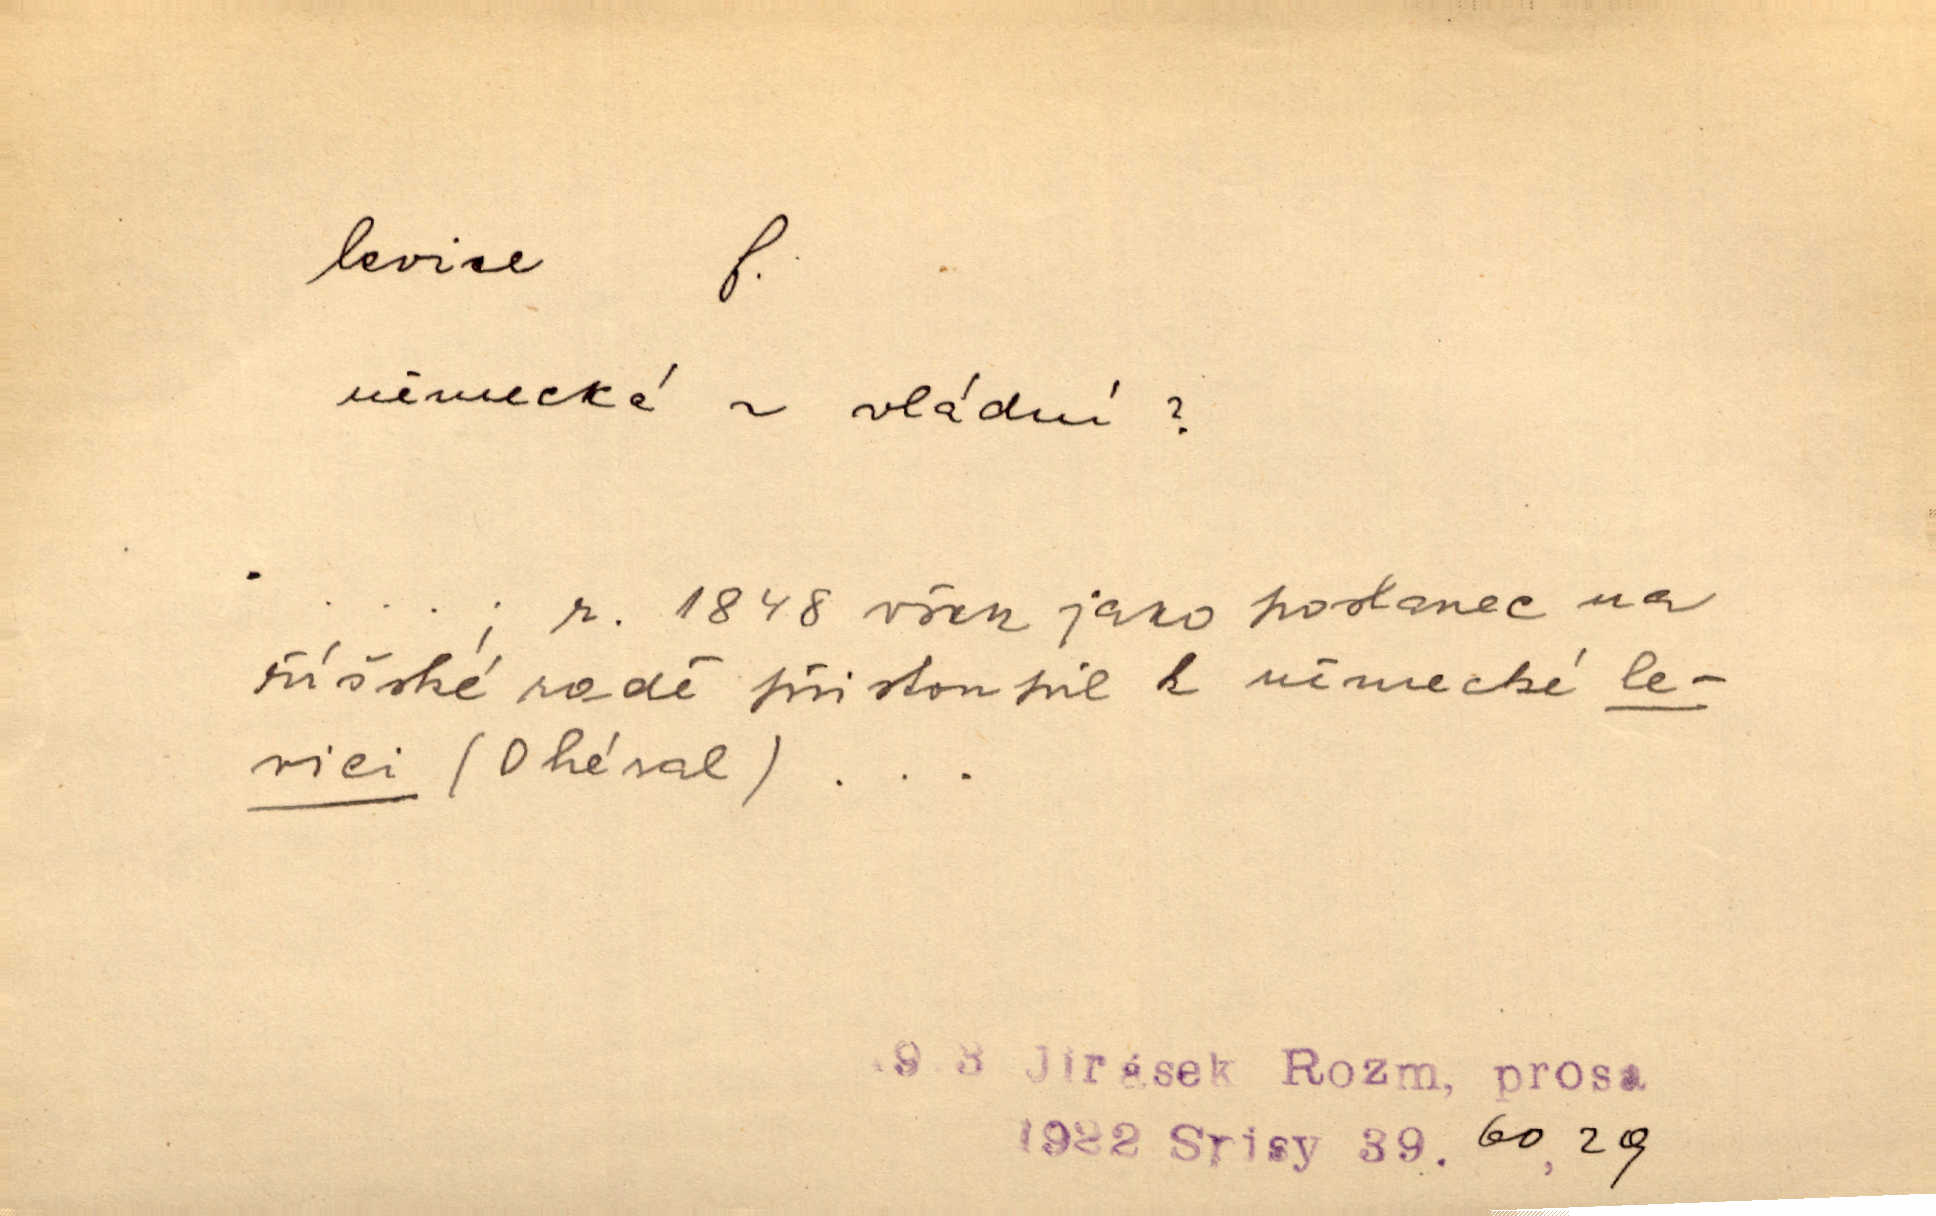 levice f.
německá ~ vládní?
. . . . ; r. 1848 však jako poslanec na
říšské radě přistoupil k německé le-
vici (Ohéral) . . .
Jirásek Rozm, prosa
1922 Srisy 39. 60, 29